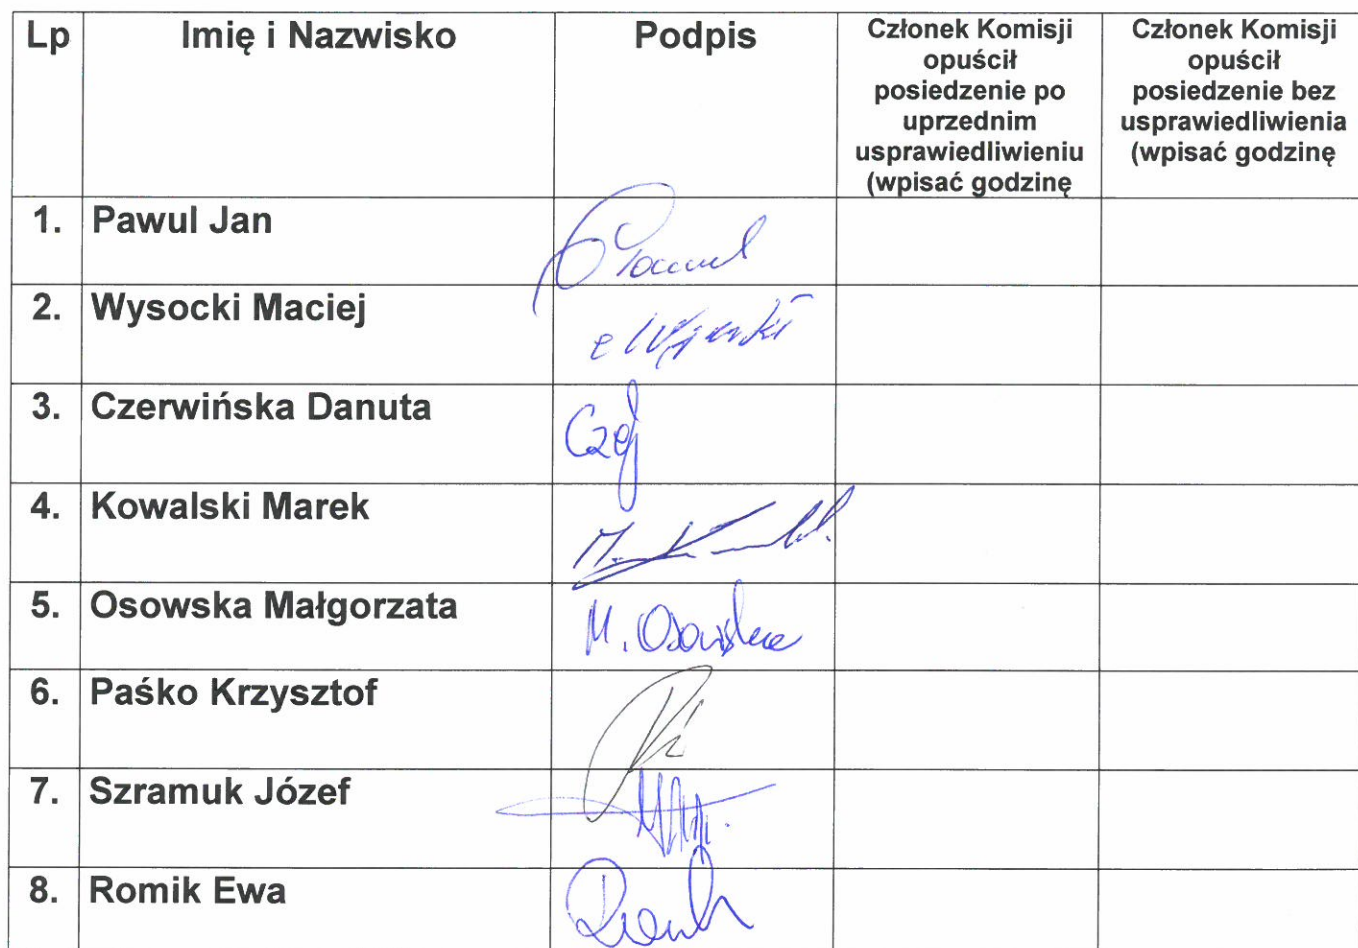 Lp Imię i Nazwisko Podpis Członek Komisji opuścił posiedzenie po uprzednim usprawiedliwieniu (wpisać godzinę Członek Komisji opuścił posiedzenie bez usprawiedliwienia (wpisać godzinę
1. Pawul Jan
2. Wysocki Maciej
3. Czerwińska Danuta
4. Kowalski Marek
5. Osowska Małgorzata M. Osowska
6. Paśko Krzysztof
7. Szramuk Józef
8. Romik Ewa